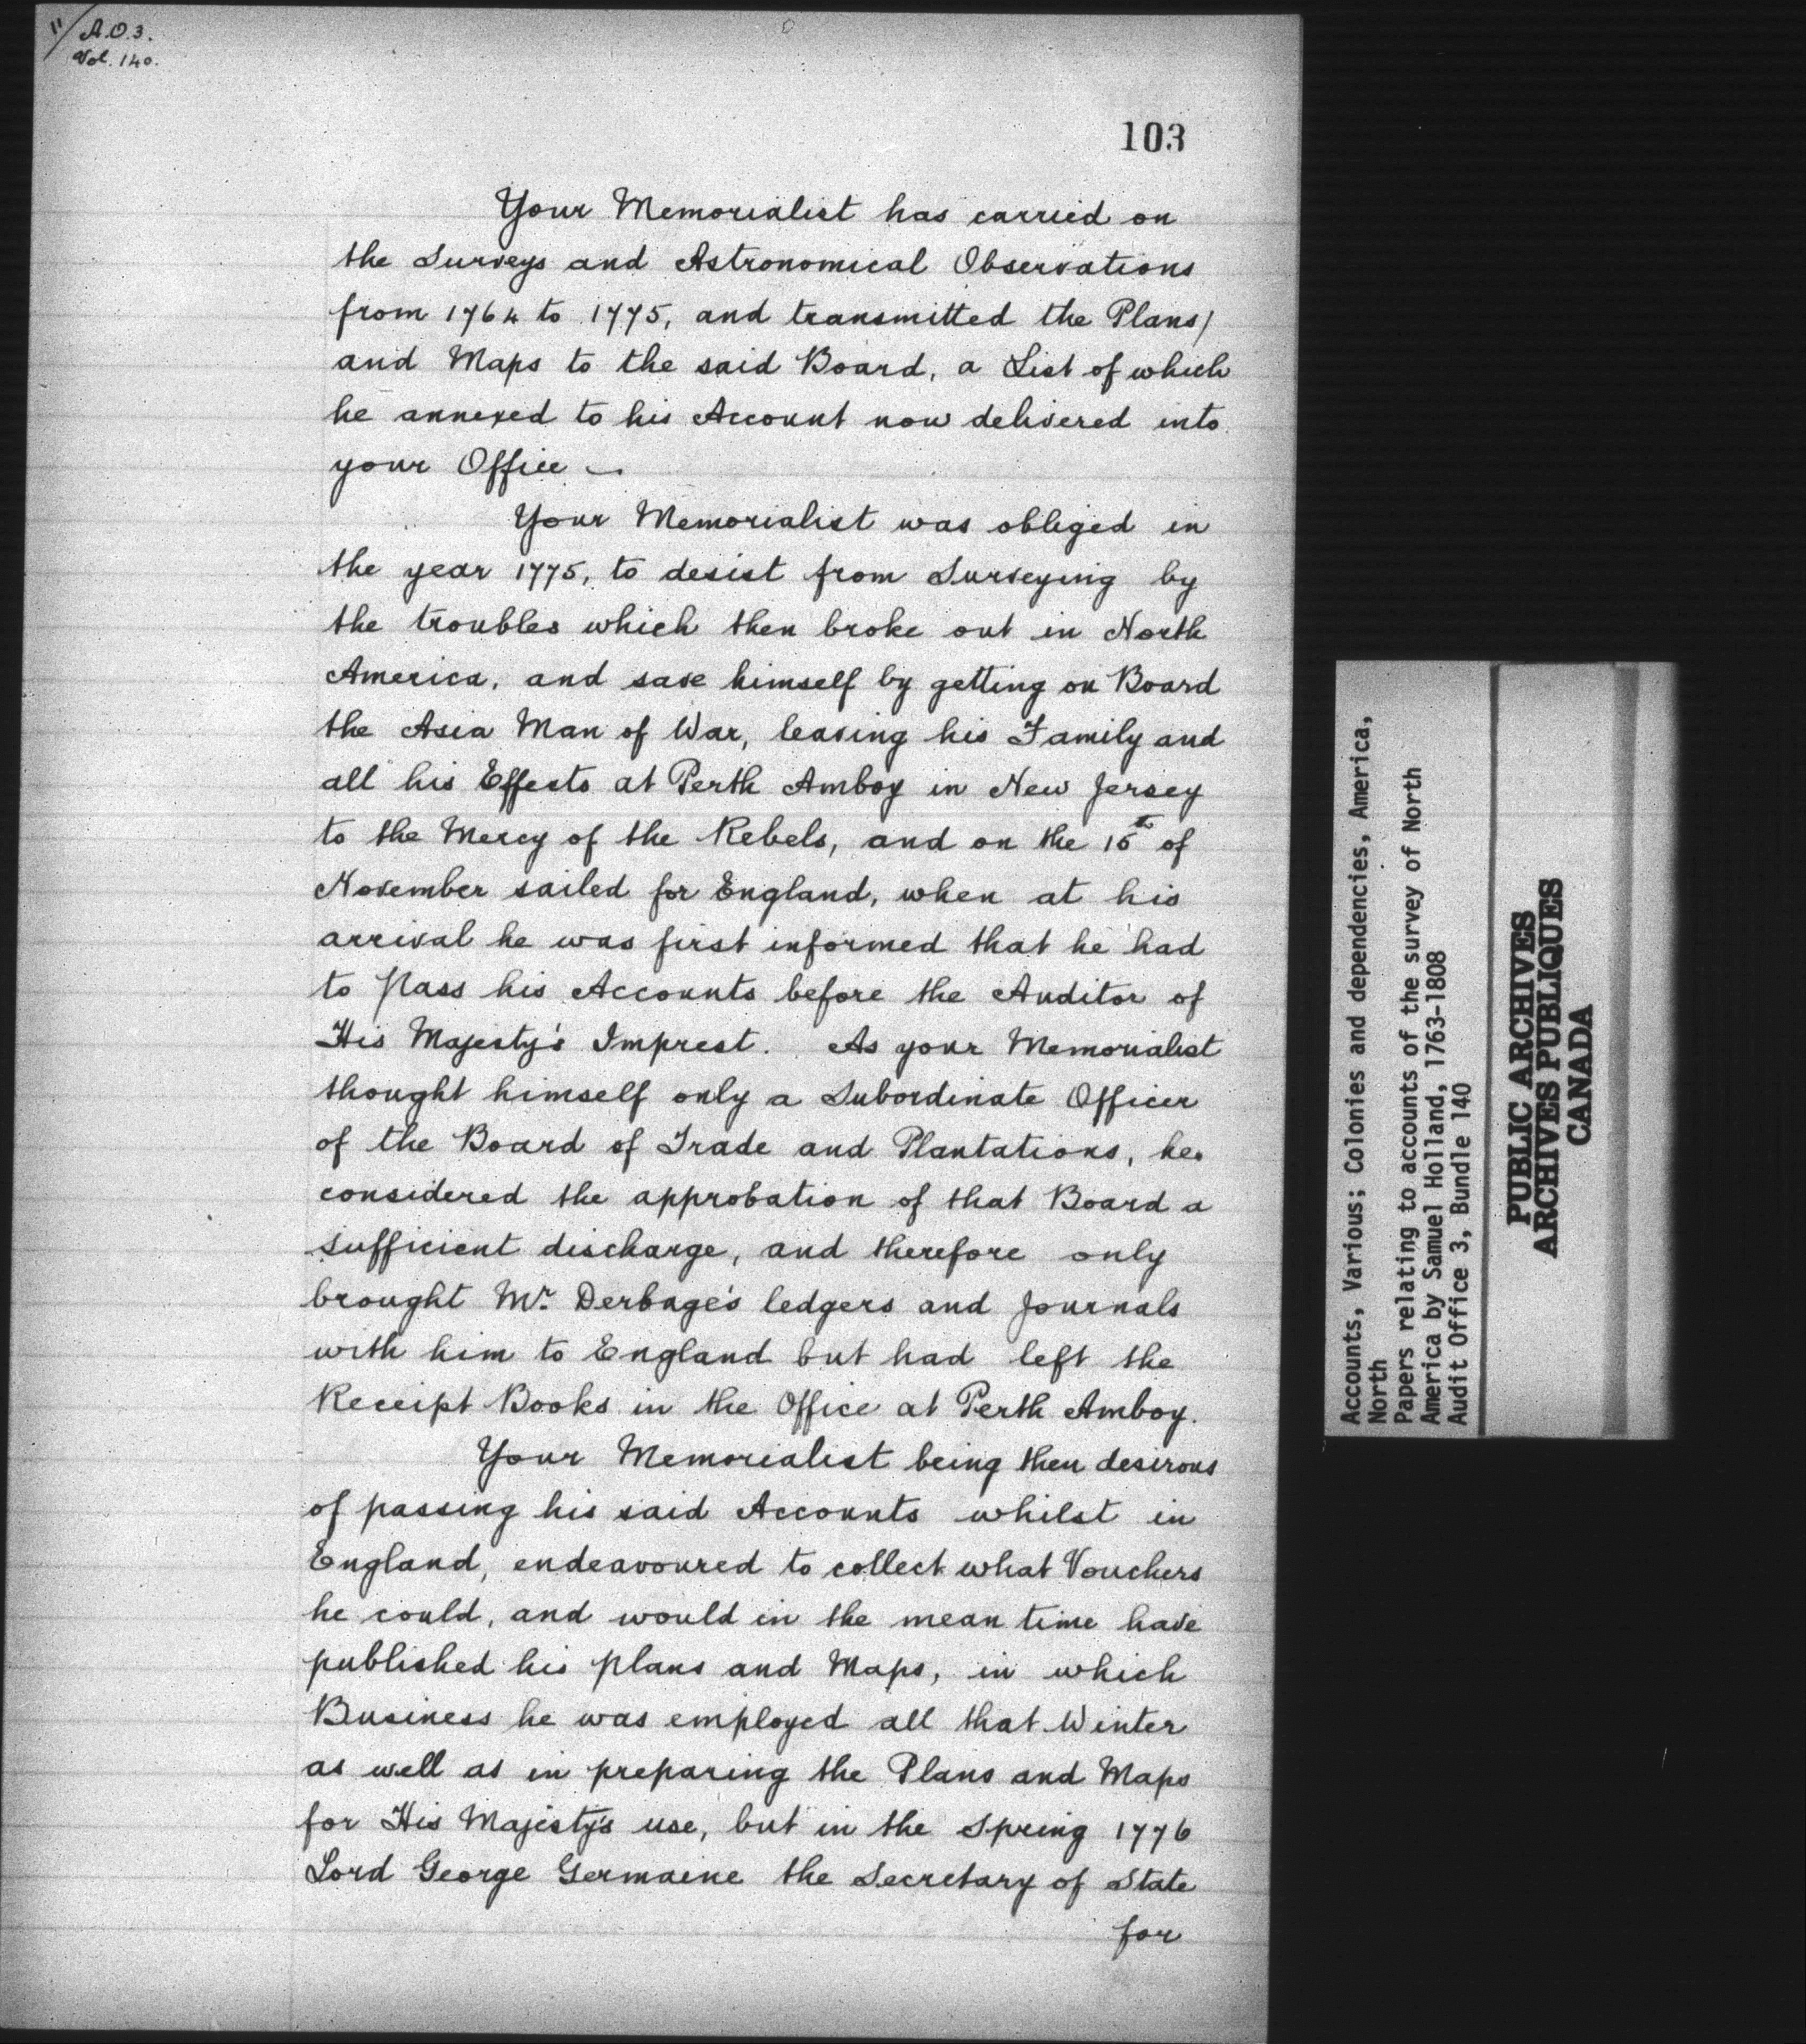 11/ A.O.3.
Vol. 140.
103
Your Memorialist has carried on
the Surveys and Astronomical Observations
from 1764 to 1775, and transmitted the Plans/
and Maps to the said Board, a List of which
he annexed to his Account now delivered into
your Office —
Your Memorialist was obliged in
the year 1775, to desist from Surveying by
the troubles which then broke out in North
America, and save himself by getting on Board
the Asia Man of War, leaving his Family and
all his Effects at Perth Amboy in New Jersey
to the Mercy of the Rebels, and on the 15th of
November sailed for England, when at his
arrival he was first informed that he had
to Pass his Accounts before the Auditor of
His Majesty's Imprest. As your Memorialist
thought himself only a Subordinate Officer
of the Board of Trade and Plantations, he
considered the approbation of that Board a
sufficient discharge, and therefore only
brought Mr. Derbage's ledgers and Journals
with him to England but had left the
Receipt Books in the Office at Perth Amboy.
Your Memorialist being then desirous
of passing his said Accounts whilst in
England, endeavoured to collect what Vouchers
he could, and would in the mean time have
published his plans and Maps, in which
Business he was employed all that Winter
as well as in preparing the Plans and Maps
for His Majesty's use, but in the Spring 1776
Lord George Germaine the Secretary of State
for
Accounts, Various; Colonies and dependencies, America,
North
Papers relating to accounts of the survey of North
America by Samuel Holland, 1763-1808
Audit Office 3, Bundle 140
PUBLIC ARCHIVES
ARCHIVES PUBLIQUES
CANADA